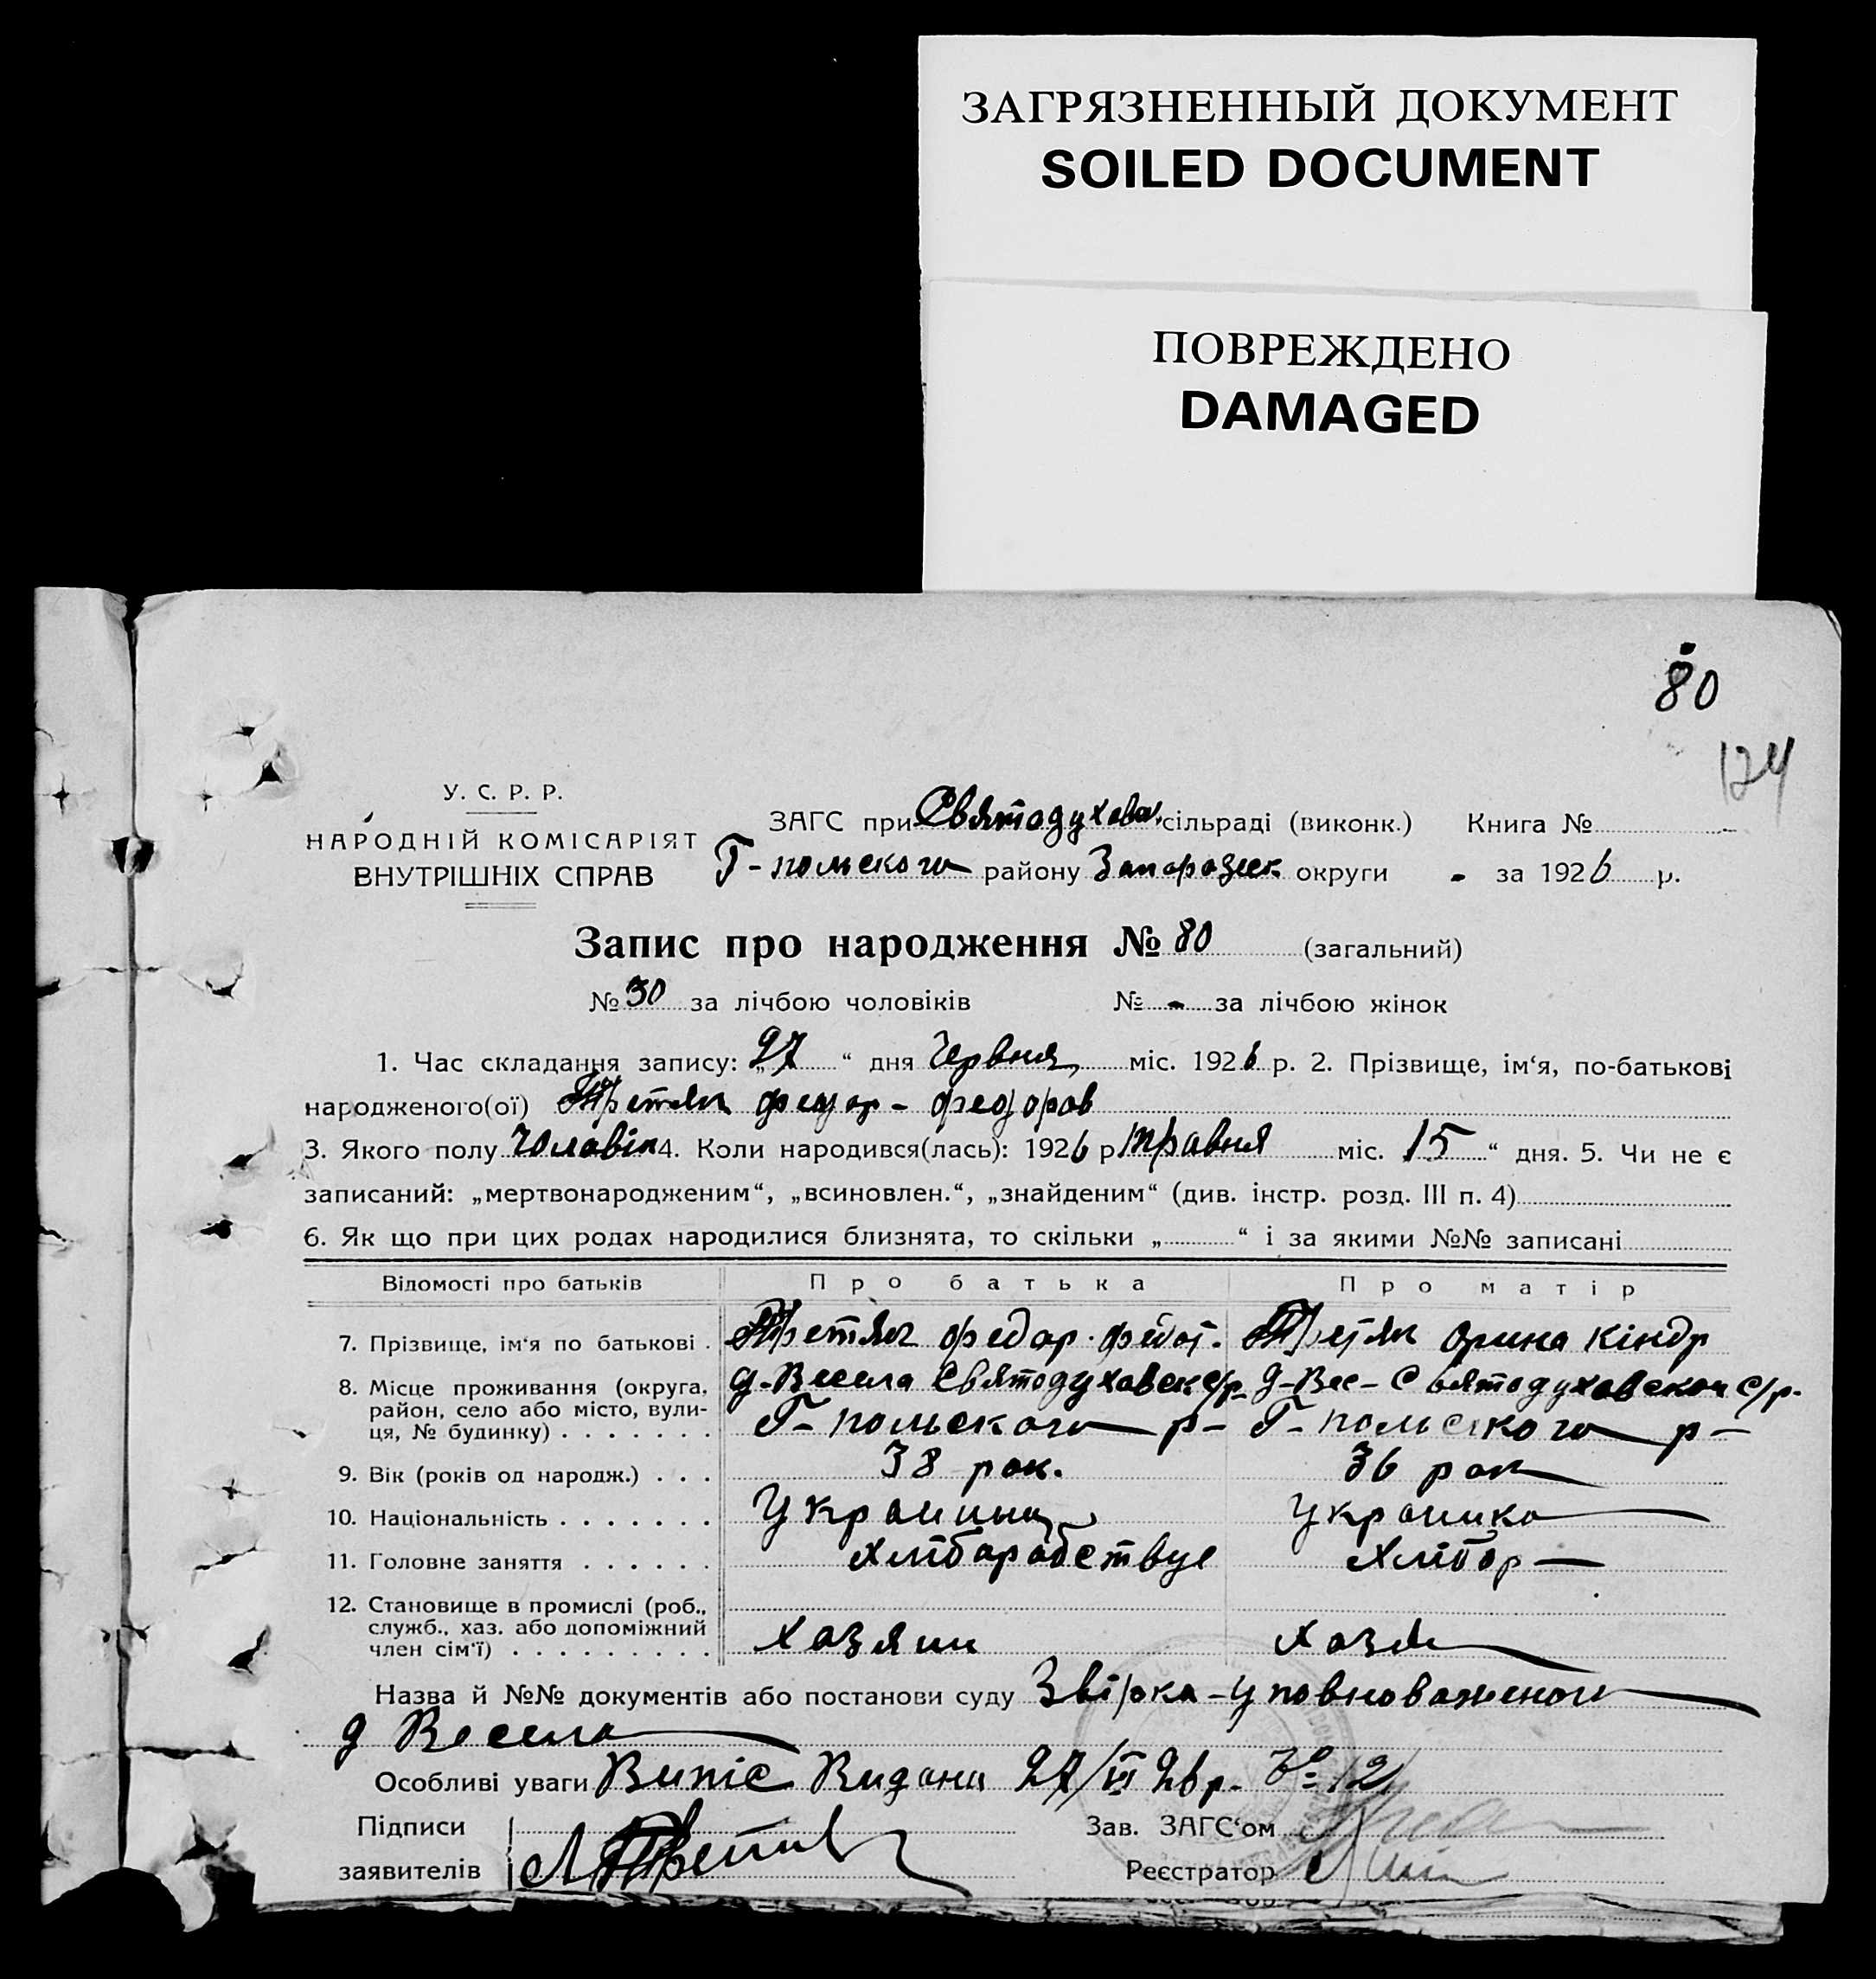 ЗАГРЯЗНЕННЫЙ ДОКУМЕНТ
SOILED DOCUMENT
ПОВРЕЖДЕНО
DAMAGED
80
124
У. С. Р. Р.
НАРОДНІЙ КОМІСАРІЯТ
ВНУТРІШНІХ СПРАВ
ЗАГС при Святодухов. сільраді (виконк.) Книга №
Г-польского району Запорозьк. округи - за 1926 р.
Запис про народження № 80 (загальний)
№ 30 за лічбою чоловіків № - за лічбою жінок
1. Час складання запису: „27“ дня Червня міс. 1926 р. 2. Прізвище, ім‘я, по-батькові
народженого(ої) Третяк Федор - Федоров
3. Якого полу Чоловік 4. Коли народився(лась): 1926 р Травня міс. 15“ дня. 5. Чи не є
записаний: „мертвонародженим“, „всиновлен.“, „знайденим“ (див. інстр. розд. III п. 4)
6. Як що при цих родах народилися близнята, то скільки „ “ і за якими №№ записані
Відомості про батьків Про батька Про матір
7. Прізвище, ім‘я по батькові . Третяк Федор. Федот. Третяк Орина Кіндр
8. Місце проживання (округа, д-Весела Святодуховск с/р- д-Вес- Святодуховской с/р.
район, село або місто, вули-
ця, № будинку) . . . . . . . Г- польского р- Г- польского р-
9. Вік (років од народж.) . . . 38 рок. 36 рок
10. Національність . . . . . . . Украинец Украинка
11. Головне заняття . . . . . . Хлібаробствує Хлібор-
12. Становище в промислі (роб.,
служб., хаз. або допоміжний
член сім‘ї) . . . . . . . . . Хозяин Хозя
Назва й №№ документів або постанови суду Звірка - Уповноваженого
д Весела
Особливі уваги Випіс Видана 27/VI 26 р. № 12
Підписи Зав. ЗАГС‘ом
заявителів Реєстратор